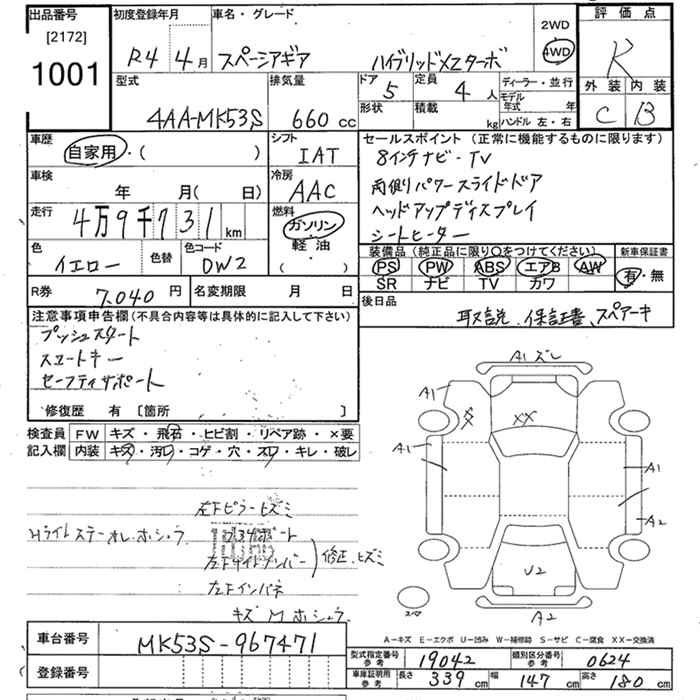 出品番号 [2172] 1001
初度登録年月 R4 年 4月
車名・グレード スペーシアギア ハイブリッドXZターボ
2WD 4WD
評価点 R
外装 内装
C B
型式 4AA-MK53S
排気量 660 cc
ドア 5 定員 4 人
形状 積載 kg
ディーラー・並行
モデル年式 年
ハンドル 左・右
車歴 自家用・( )
シフト IAT
車検 年 月( 日)
冷房 AAC
走行 4万9千731 km
燃料 ガソリン・軽油・( )
色 イエロー 色替 色コード DW2
セールスポイント (正常に機能するものに限ります)
8インチナビ・TV
両側パワースライドドア
ヘッドアップディスプレイ
シートヒーター
装備品 (純正品に限り○をつけてください)
PS PW ABS エアB AW
SR ナビ TV カワ
新車保証書 有・無
R券 7,040 円 名変期限 月 日
後日品 取説、保証書、スペアーキ
注意事項申告欄 (不具合内容等は具体的に記入して下さい)
プッシュスタート
スマートキー
セーフティサポート
修復歴 有 [箇所 ]
検査員記入欄
FW キズ・飛石・ヒビ割・リペア跡・×要
内装 キズ・汚レ・コゲ・穴・スレ・キレ・破レ
左Fピラーヒズミ
左Fインパネ
キズ M ホシュウ
修正、ヒズミ
A1ズレ
A1
XX
A1
A1
A2
U2
A2
スペア
A-キズ E-エクボ U-凹み W-補修跡 S-サビ C-腐食 XX-交換済
車台番号 MK53S-967471
登録番号
型式指定番号 参考 19042 類別区分番号 参考 0624
車庫証明用 参考 長さ 339 cm 幅 147 cm 高さ 180 cm